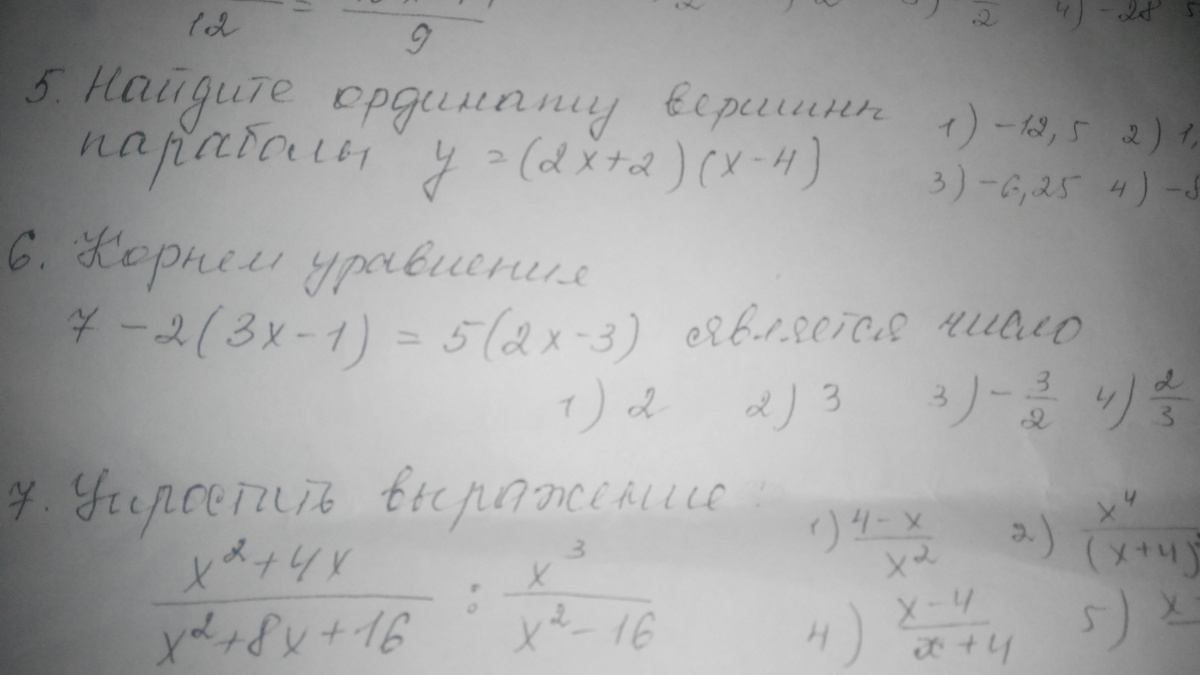 12 = 9
2 4) -28
5. Найдите ординату вершины 1) -12,5 2) 1,
параболы y = (2x+2)(x-4) 3) -6,25 4) -
6. Корнем уравнения
7 - 2(3x-1) = 5(2x-3) является число
1) 2 2) 3 3) -3/2 4) 2/3
7. Упростить выражение: 1) 4-x/x² 2) x⁴/(x+4)
x²+4x/x²+8x+16 : x³/x²-16 4) x-4/x+4 5) x